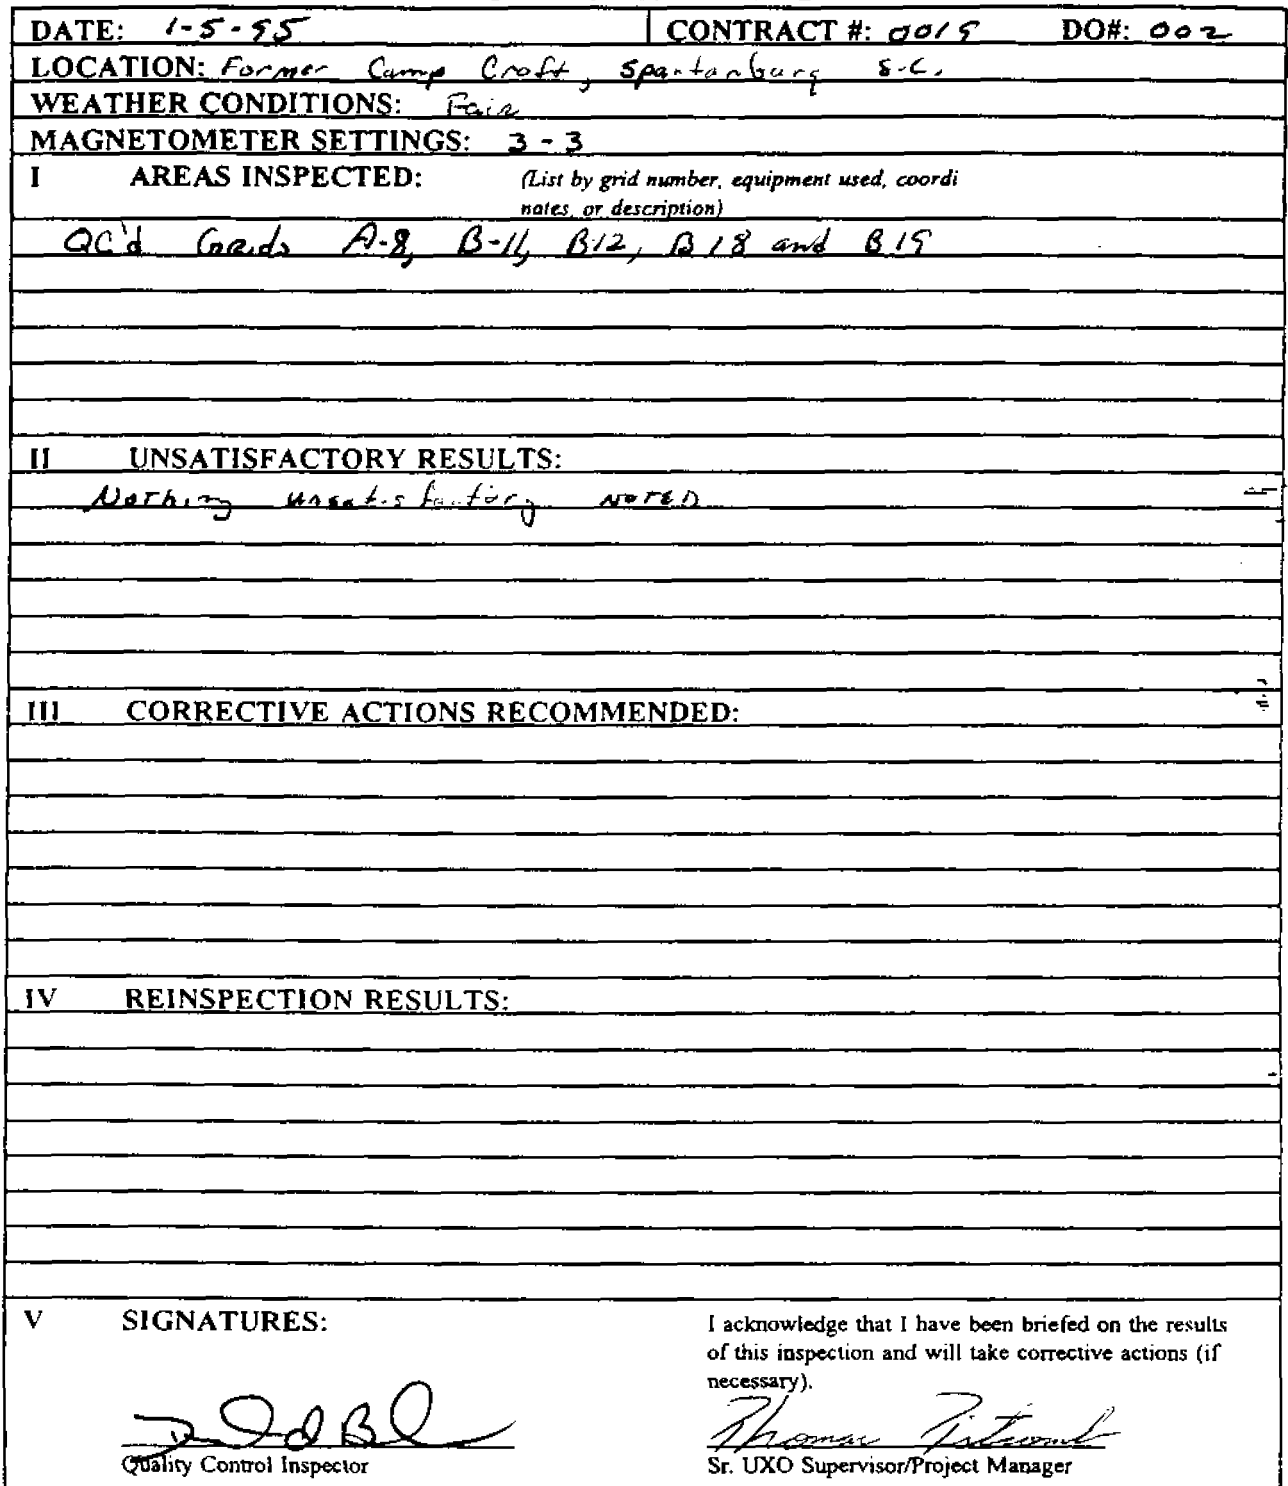 DATE: 1-5-95 CONTRACT #: 0019 DO#: 002
LOCATION: Former Camp Croft, Spartanburg S.C.
WEATHER CONDITIONS: Fair
MAGNETOMETER SETTINGS: 3-3
I AREAS INSPECTED: (List by grid number, equipment used, coordi
nates, or description)
QC'd Grids A-8, B-11, B12, B18 and B19
II UNSATISFACTORY RESULTS:
Nothing unsatisfactory NOTED
III CORRECTIVE ACTIONS RECOMMENDED:
IV REINSPECTION RESULTS:
V SIGNATURES:
I acknowledge that I have been briefed on the results
of this inspection and will take corrective actions (if
necessary).
Thomas
Quality Control Inspector Sr. UXO Supervisor/Project Manager